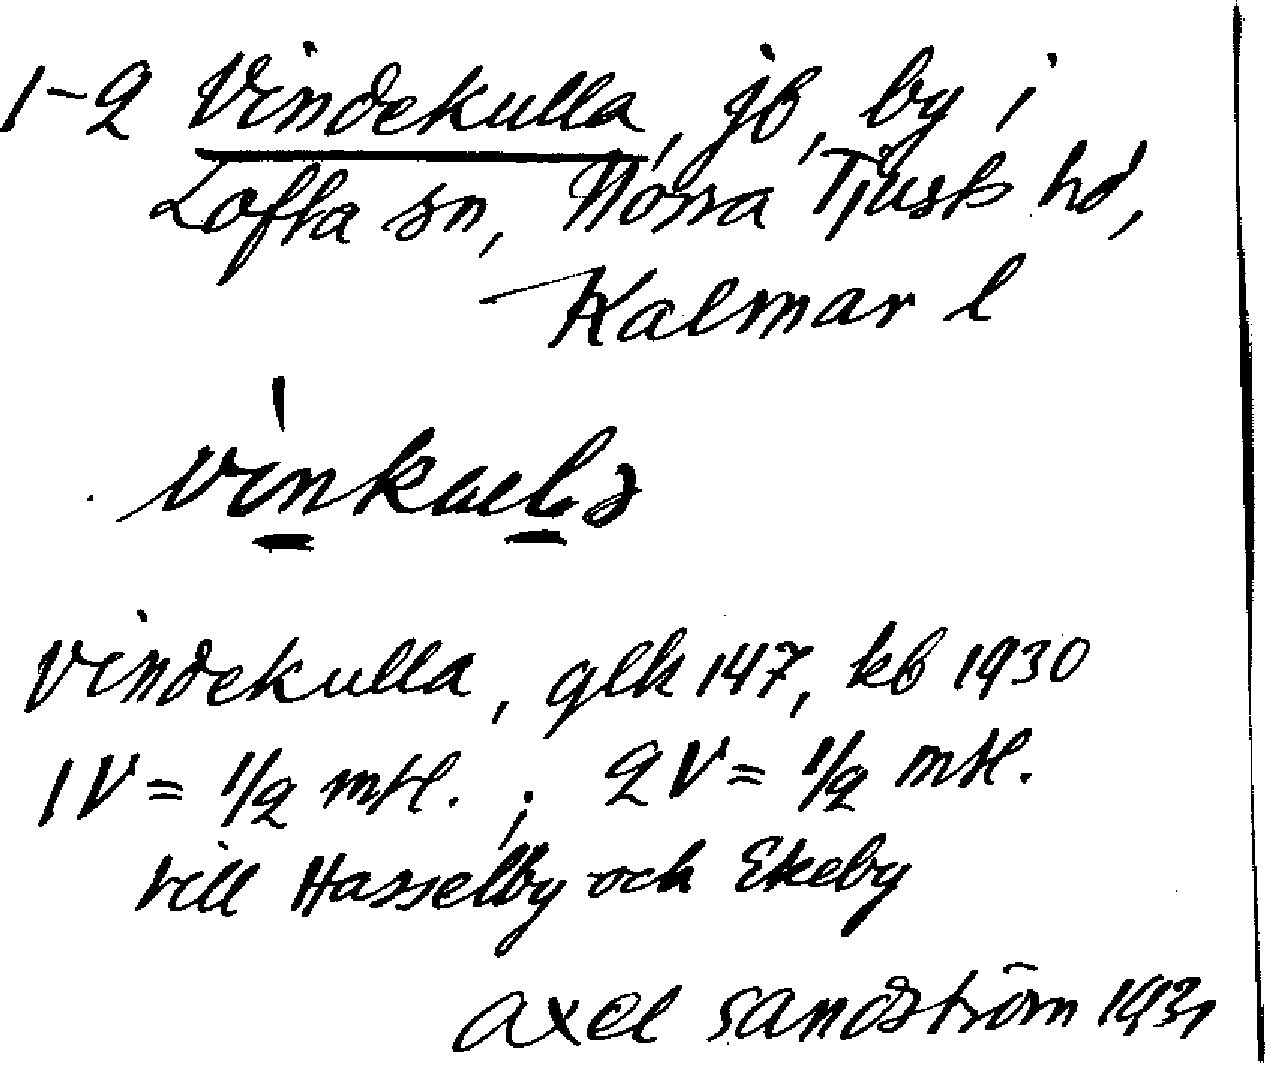 1-2 Vindekulla, jb, by i
Lofta sn, Norra Tjust hd,
Kalmar l
Vindekulla, glk 147, kb 1930
1 V = 1/2 mtl. ; 2 V = 1/2 mtl.
till Hasselby och Ekeby
Axel Sandström 1931